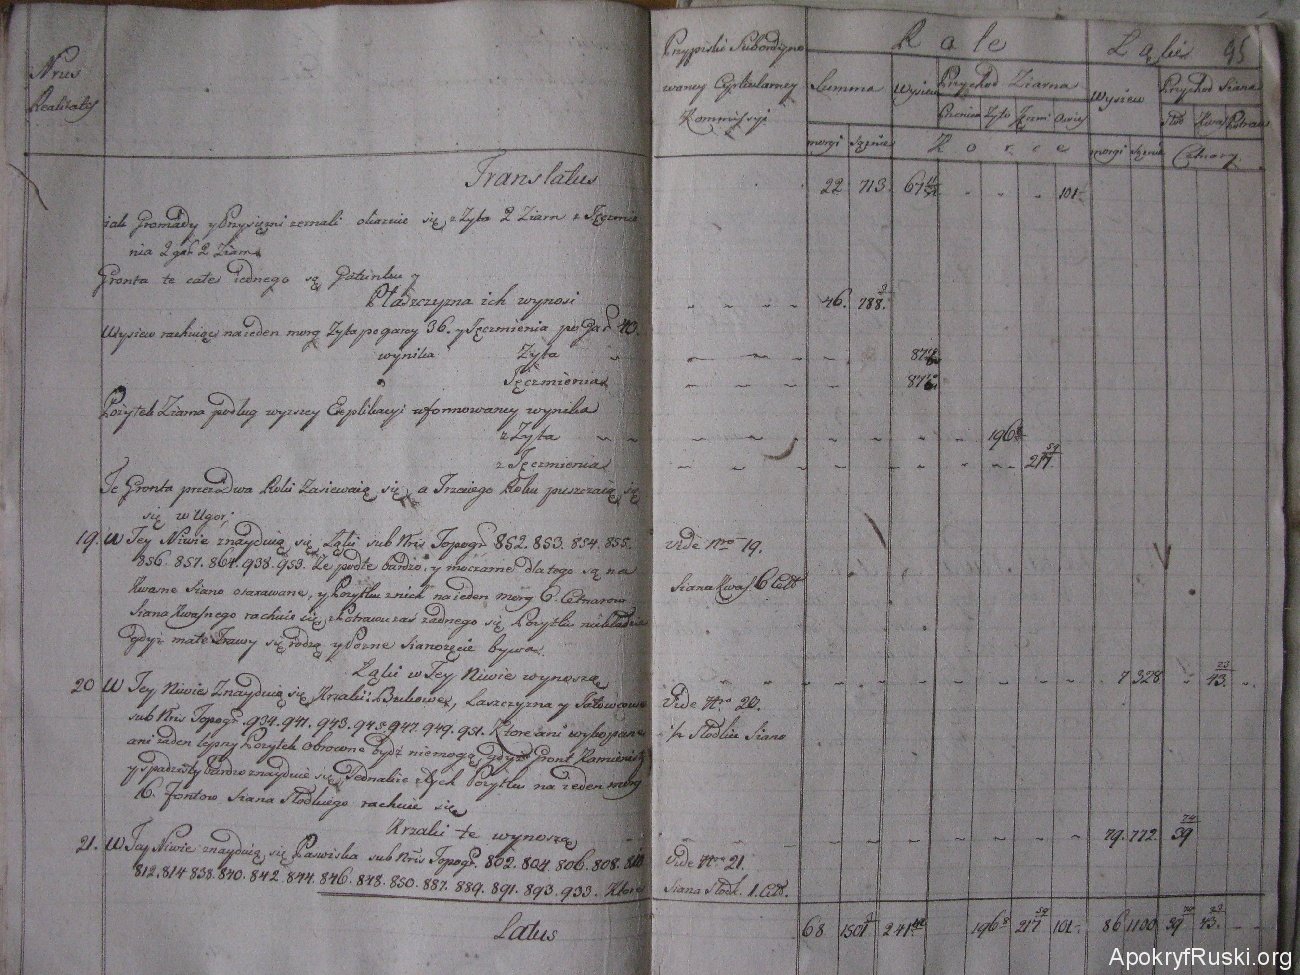 Nrus
Realitatis
Translatus
iak Gromady y Przysięzni zeznali okazuie się z Zyta 2 Ziarn z Jęczmie
nia 2 Ziarn
Gronta te całe iednego są Gatunku y
Płaszczyzna ich wynosi
Wysiew rachuiąc na ieden morg Zyta po garcy 36. y Jęczmienia po Gar 40.
wynika Zyta
Jęczmienia
Pozytek Ziarna podług wyzszey Explikacyi uformowaney wynika
z Zyta
z Jęczmienia
Te Gronta przez dwa Roki Zasiewaią się, a Trzeciego Roku puszczaią się
się w Ugor
19. W Tey Niwie znayduią się Łąki sub Nris Topogr. 852. 853. 854. 855.
856. 857. 864. 938. 953. Ze podłe bardzo, y moczarne dlatego są na
Kwasne Siano oszacowane, y Pozytku z nich na ieden morg 6. Cetnarow
Siana Kwasnego rachuie się, z Potrawu zaś zadnego się Pozytku niekładzie
gdyz małe Trawy się rodzą y Pozne Sianozęcie bywa.
Łąki w Tey Niwie wynoszą
20 W Tey Niwie Znayduią się Krzaki: Bukowe, Laszczyzna y Jałowcowe
sub Nris Topogr. 934. 941. 943. 945. 947. 949. 951. Ktore ani wykopane
ani zaden lepszy Pozytek obrocone bydź niemogą, gdyz Gront Kamienisty
y spadzisty bardzo znayduie się, Jednakze z tych Pozytku na ieden morg
16. Fontow Siana Słodkiego rachuie się
Krzaki te wynoszą
21. W Tey Niwie znayduią się Pastwiska sub Nris Topogr. 802. 804. 806. 808. 810
812. 814 838. 840. 842. 844. 846. 848. 850. 887. 889. 891. 893. 933. Ktore
Latus
Przypiski Subordyno
waney Cyrkularney
Kommissyi
vide Nro 19.
Siana Kwaś. 6 Cet.
Vide Nro 20.
Słodkie Siano
Vide Nro 21.
Siana Słodk. 1. Cet.
Role Łąki 95
Summa Wysiew Przychod Ziarna Wysiew Przychod Siana
Pszenica Zyto Jęczm. Owies Słod Kwaś Potraw
morgi Sążnie Korce morgi Sążnie Cetnary
22 713 67 101
46. 788
87
87
196
217
7 328 43.
79. 772 39
68 1501 241 196 217 101 86 1100 39 43.
ApokryfRuski.org